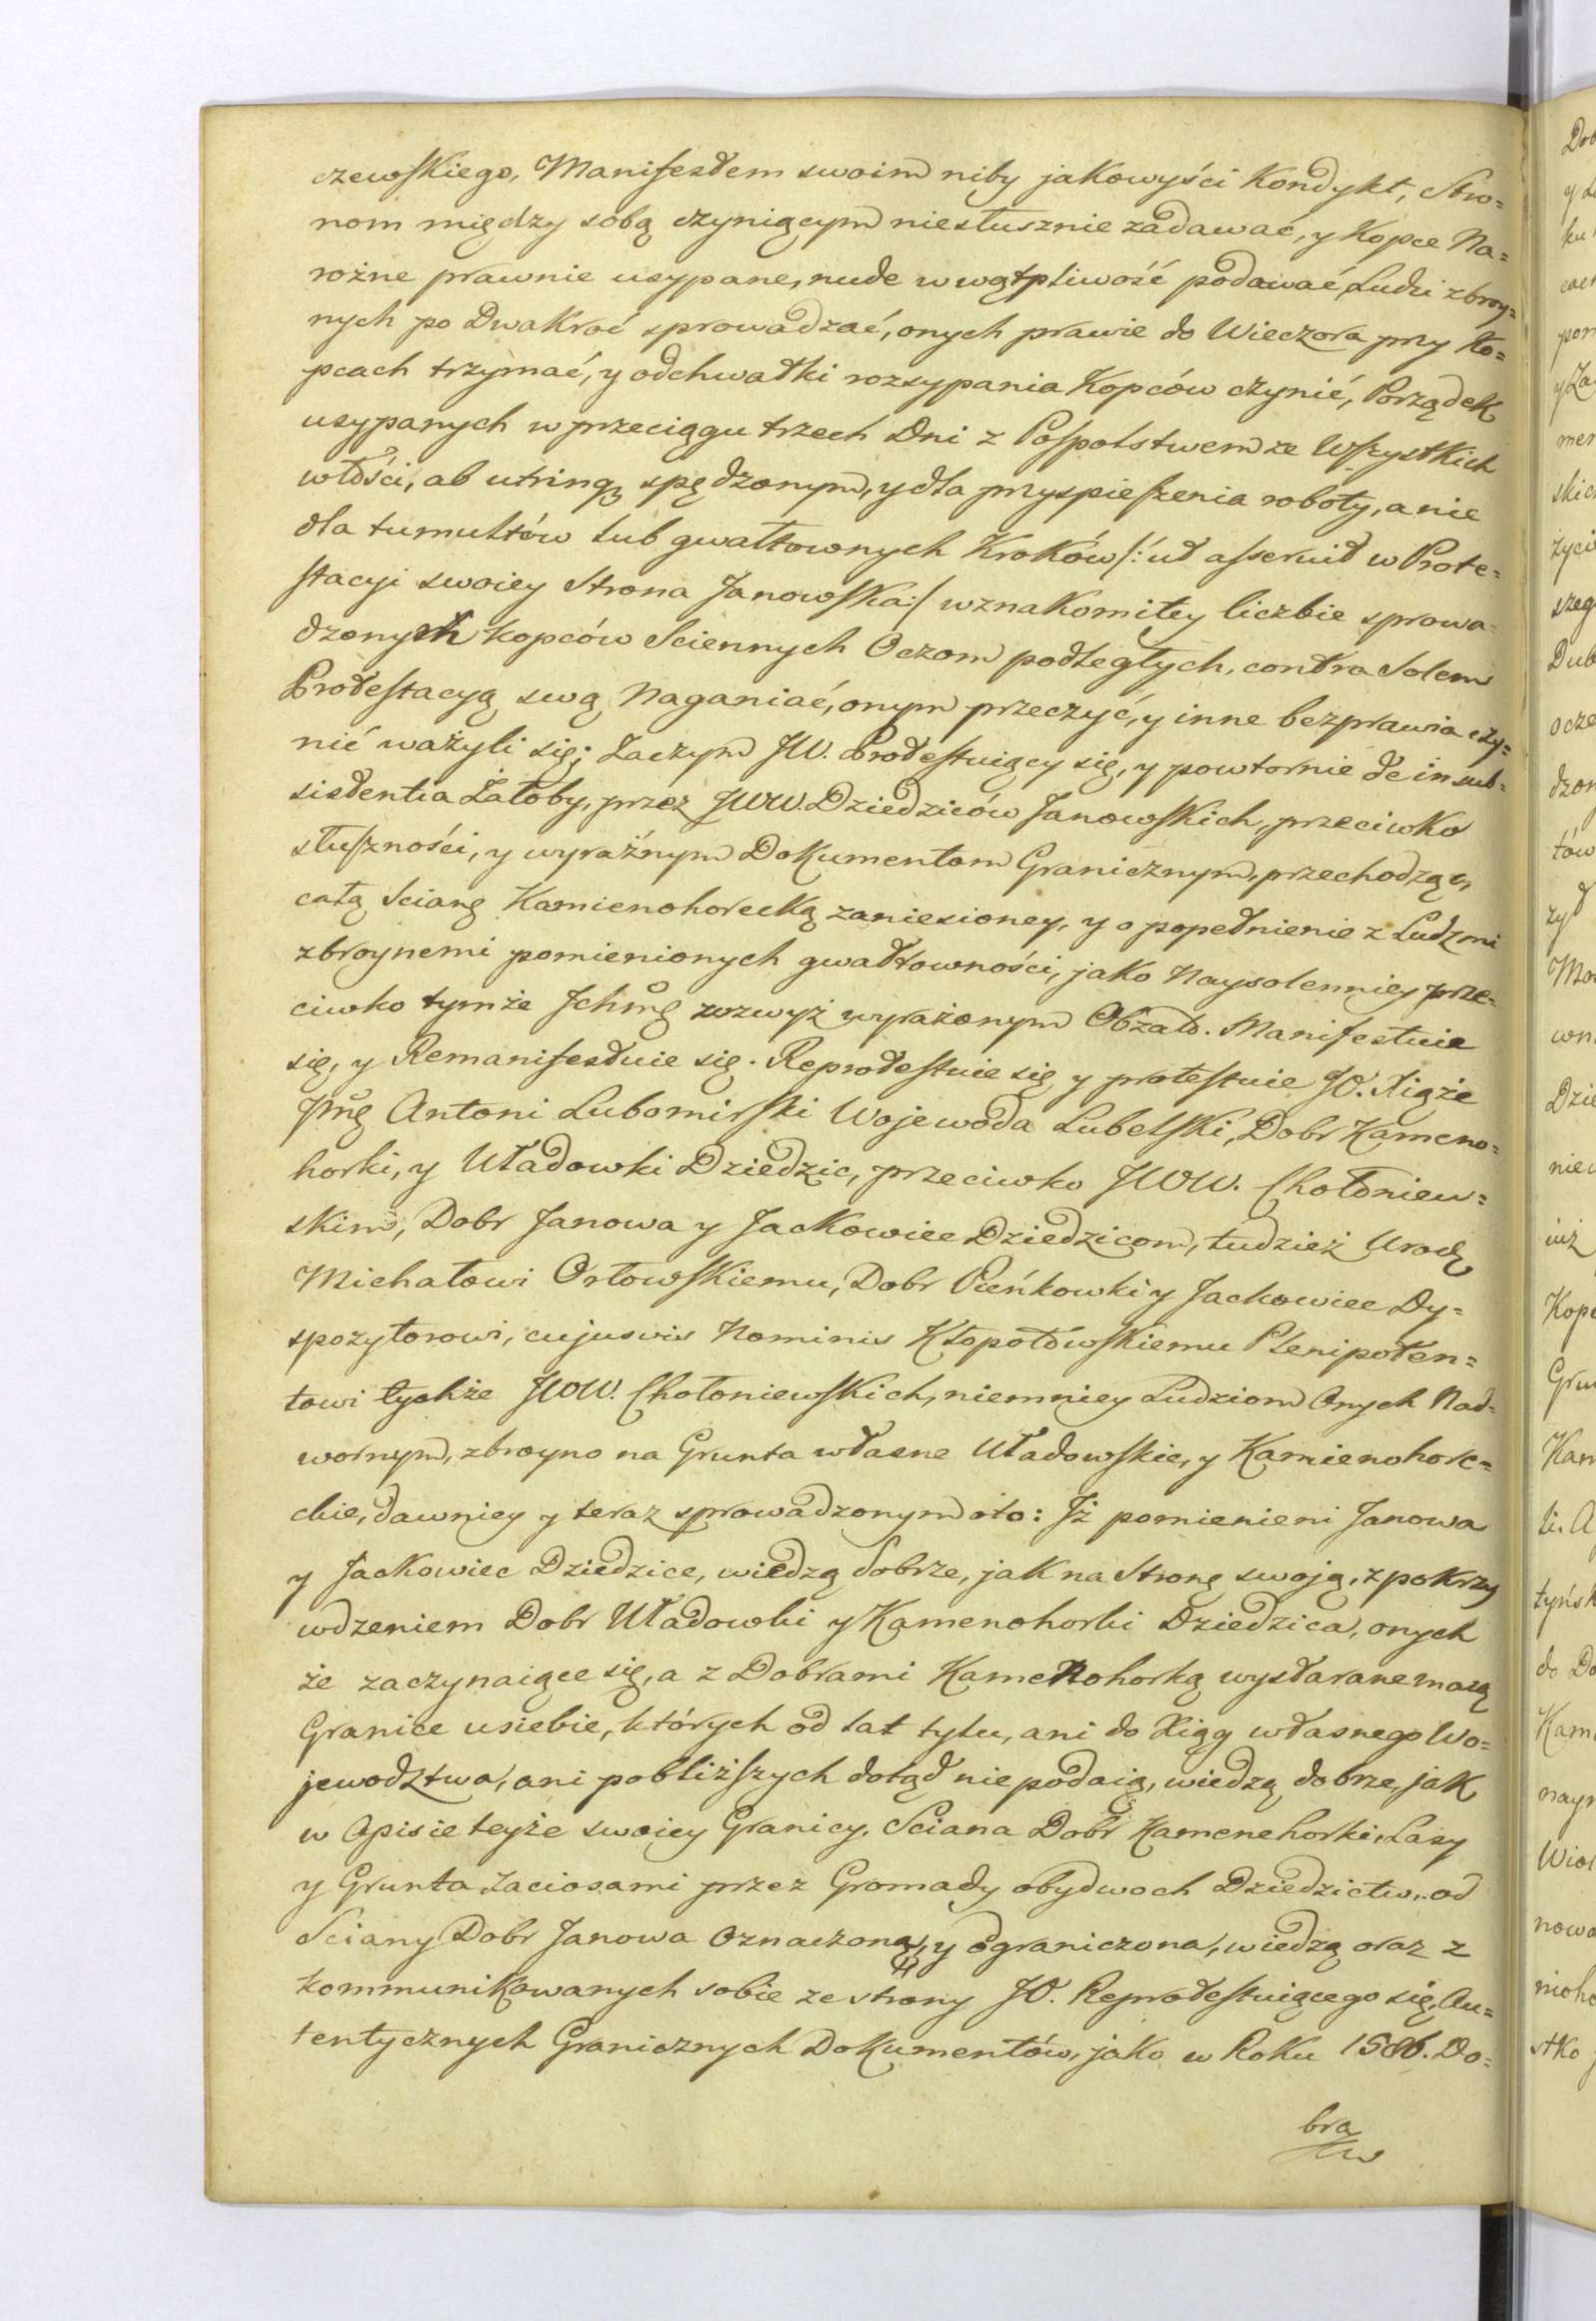 czewskiego, Manifestem swoim niby jakowyści Kondykt, Stro=
nom między sobą czyniącym niesłusznie zadawać, y Kopce Na=
rożne prawnie usypane, nude w wątpliwość podawać, Ludzi zbroy=
nych po Dwakroć sprowadzać, onych prawie do Wieczora przy Ko=
pcach trzymać, y odchwałki rozsypania Kopców czynić, Porządek
usypanych w przeciągu trzech Dni z Pospolstwem ze Wszystkich
włości, ab utrinq spędzonym, y dla przyspieszenia roboty, a nie
dla tumultów lub gwałtownych Kroków /: ut asseruit w Prote=
stacyi swoiey Strona Janowska :/ w znakomitey liczbie sprowa=
dzonych kopców Sciennych Oczom podległych, contra Solem
Protestacyą swą Naganiać, onym przeczyć, y inne bezprawia czy=
nić ważyli się; Zaczym JW. Protestuiący się, y powtornie de in sub=
sistentia Żałoby, przez JWW. Dziedziców Janowskich, przeciwko
słuszności, y wyraźnym Dokumentom Granicznym, przechodzący
całą Scianę Kamienohorecką zaniesioney, y o popełnienie z Ludzmi
zbroynemi pomienionych gwałtowności, jako Naysolenniey prze=
ciwko tymże Ichmć wzwyż wyrażonym Obżało. Manifestuie
się, y Remanifestuie się. Reprotestuie się y protestuie JO. Xiąże
Jmć Antoni Lubomirski Wojewoda Lubelski, Dobr Kameno=
horki, y Uładowki Dziedzic, przeciwko JWW. Chołoniew=
skim, Dobr Janowa y Jackowiec Dziedzicom, tudzież Urodz
Michałowi Orłowskiemu, Dobr Pieńkowki y Jackowiec Dy=
spozytorowi, cujusvis Nominis Kłopotowskiemu Plenipoten=
towi tychże JWW. Chołoniewskich, niemniey Ludziom Onych Nad=
wornym, zbroyno na Grunta własne Uładowskie, y Kamienohore=
ckie, dawniey y teraz sprowadzonym oto: Iż pomienieni Janowa
y Jackowiec Dziedzice, wiedzą dobrze, jak na Stronę swoją, z pokrzy
wdzeniem Dobr Uładowki y Kamenohorki Dziedzica, onych
że zaczynaiące się, a z Dobrami Kamenohorką wystarane maią
Granice u siebie, których od lat tylu, ani do Xiąg własnego Wo=
jewodztwa, ani pobliższych dotąd nie podaią, wiedzą dobrze, jak
w Opisie teyże swoiey Granicy, Sciana Dobr Kamenehorki, Lasy
y Grunta Zaciosami przez Gromady obydwoch Dziedzictw, od
Sciany Dobr Janowa Oznaczona, y ograniczona, wiedzą oraz z
kommunikowanych sobie ze strony JO. Reprotestuiącego się, Au=
tentycznych Granicznych Dokumentów, jako w Roku 1586. Do=
bra